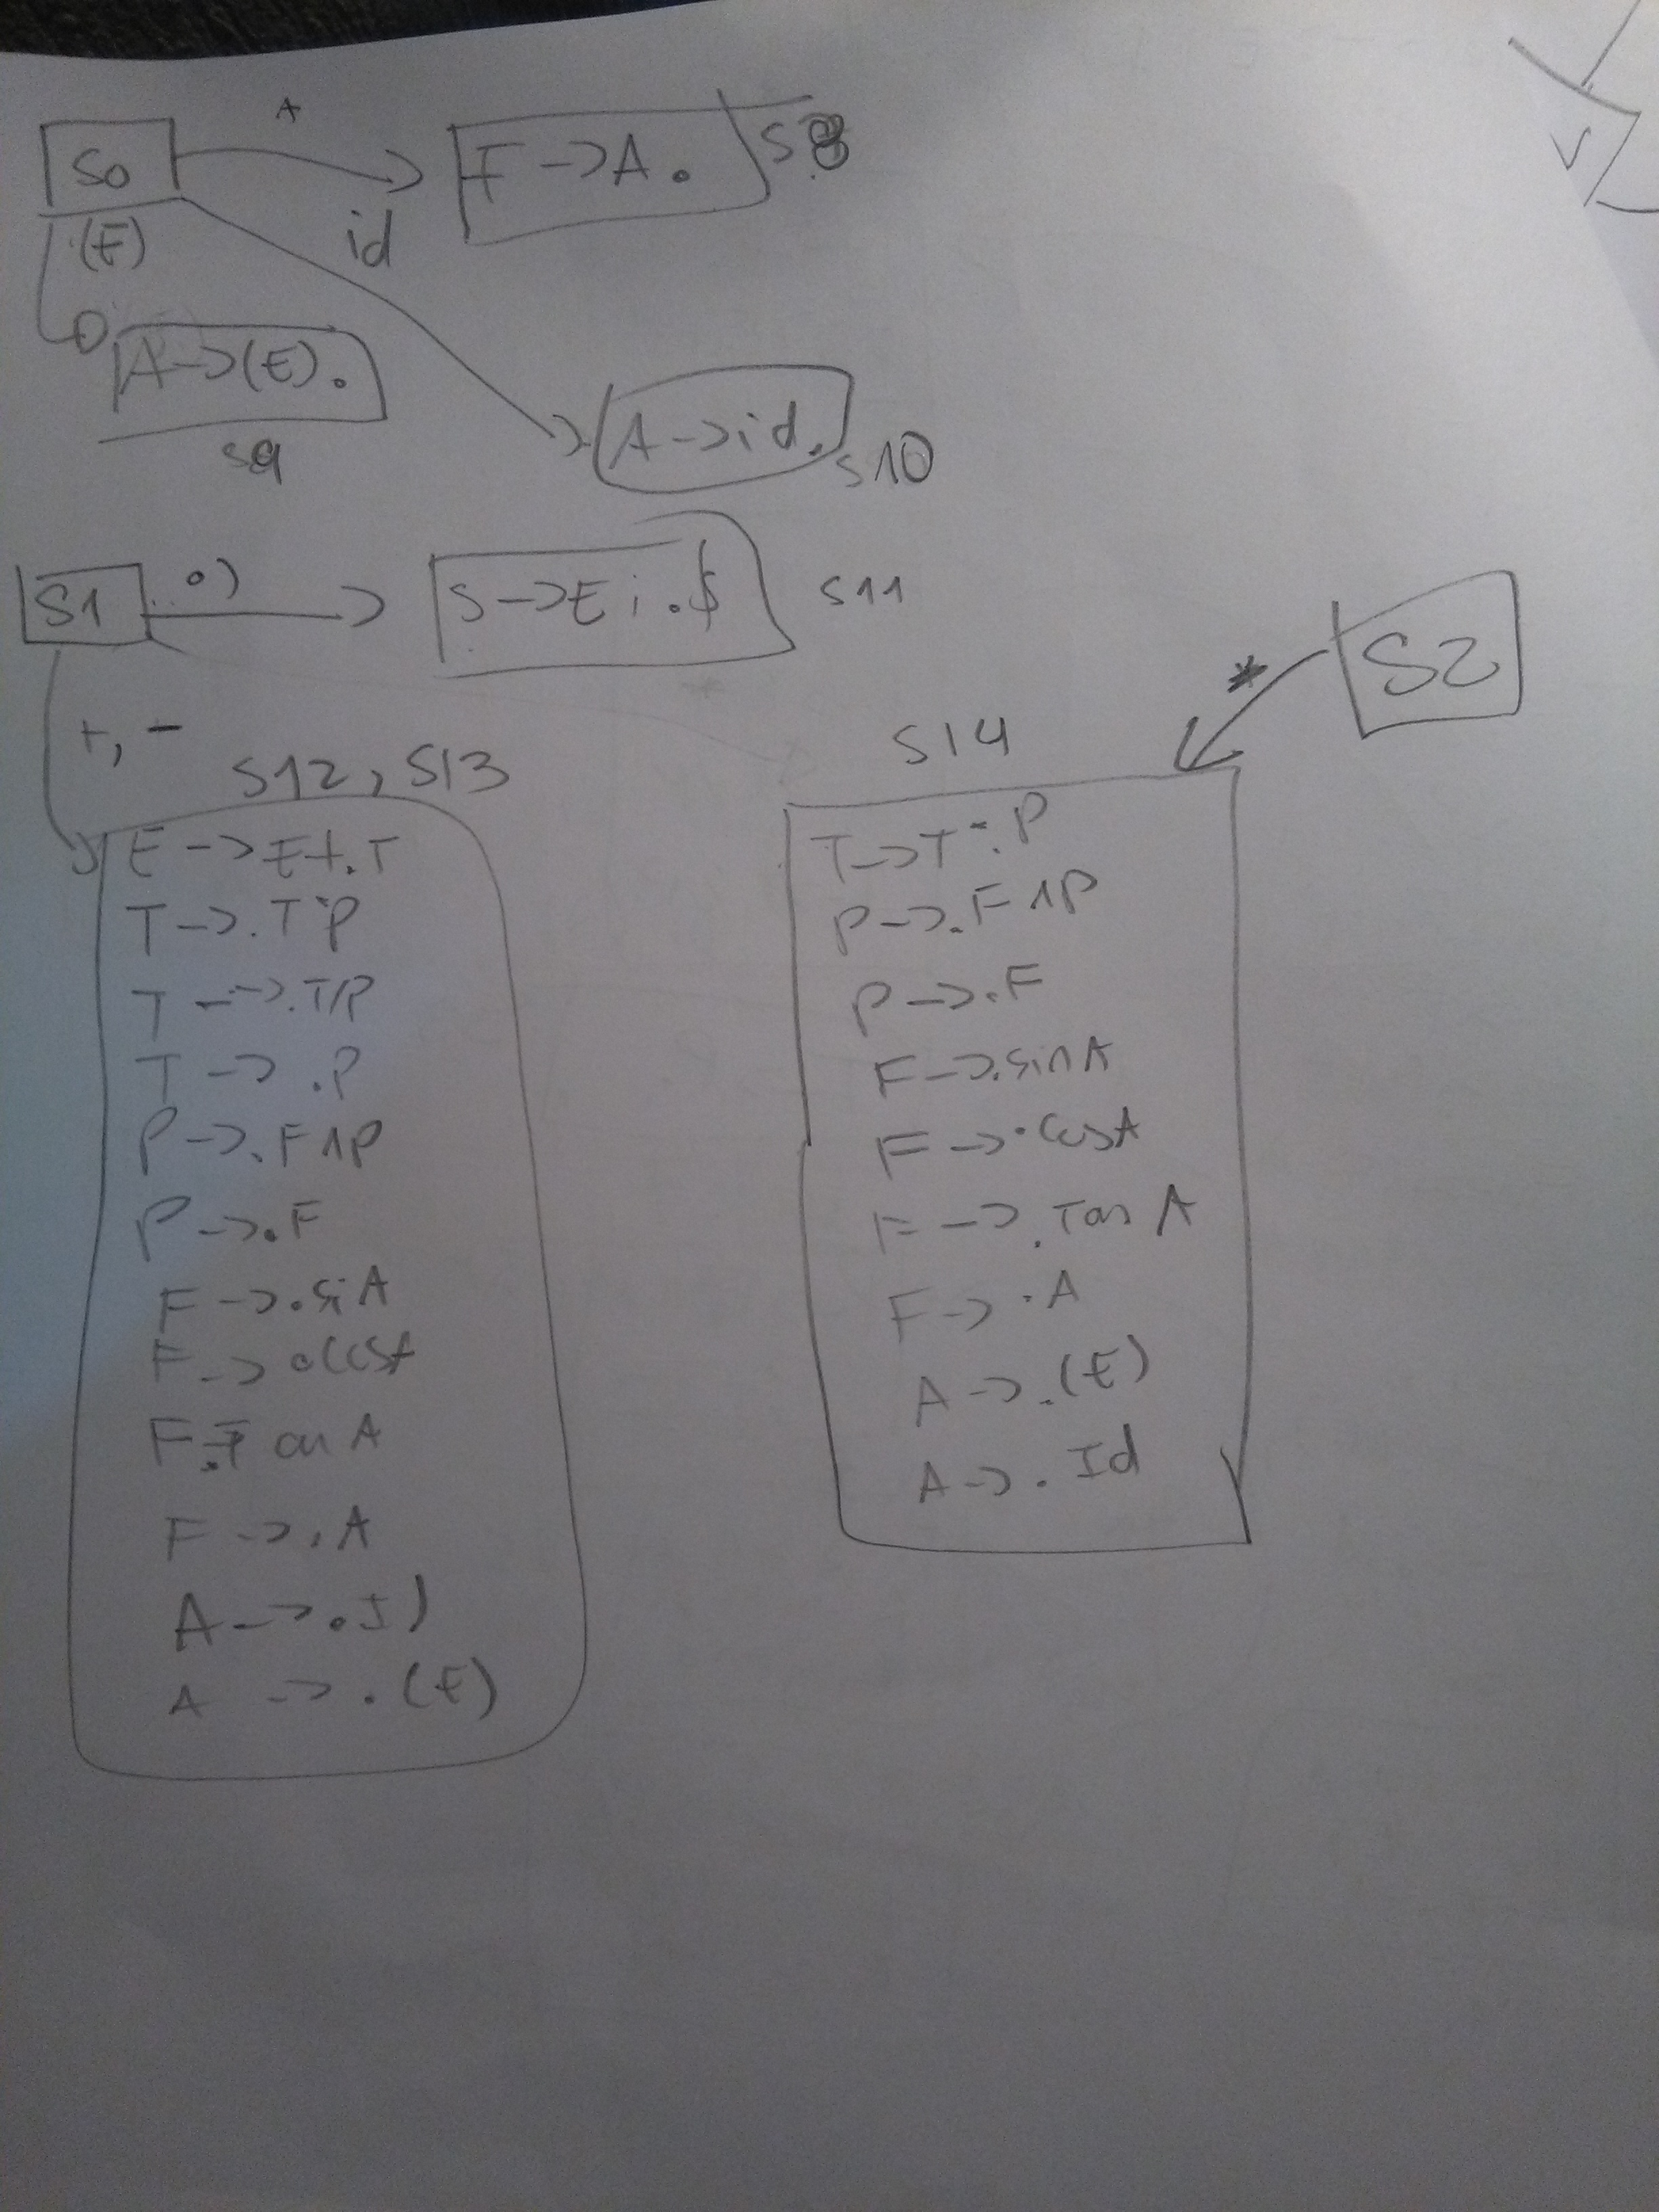 S0
A
F->A.
S8
(E)
id
A->(E).
S9
A->id.
S10
S1
S->E;.$
S11
S2
*
+, -
S12, S13
S14
E->E+.T
T->.T*P
T->.T/P
T->.P
P->.F^P
P->.F
F->.siA
F->.cosA
F->.Tan A
F->.A
A->.Id
A->.(E)
T->T*.P
P->.F^P
P->.F
F->.sinA
F->.cosA
F->.Tan A
F->.A
A->.(E)
A->.Id